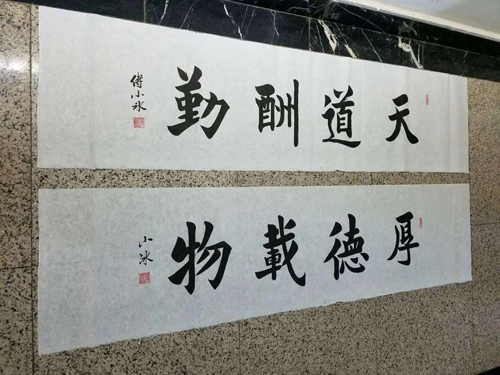 天道酬勤
傅小冰
厚德載物
小冰